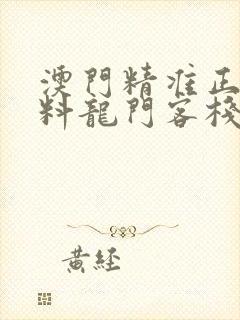 澳門精准正
料龍門客棧
黃經